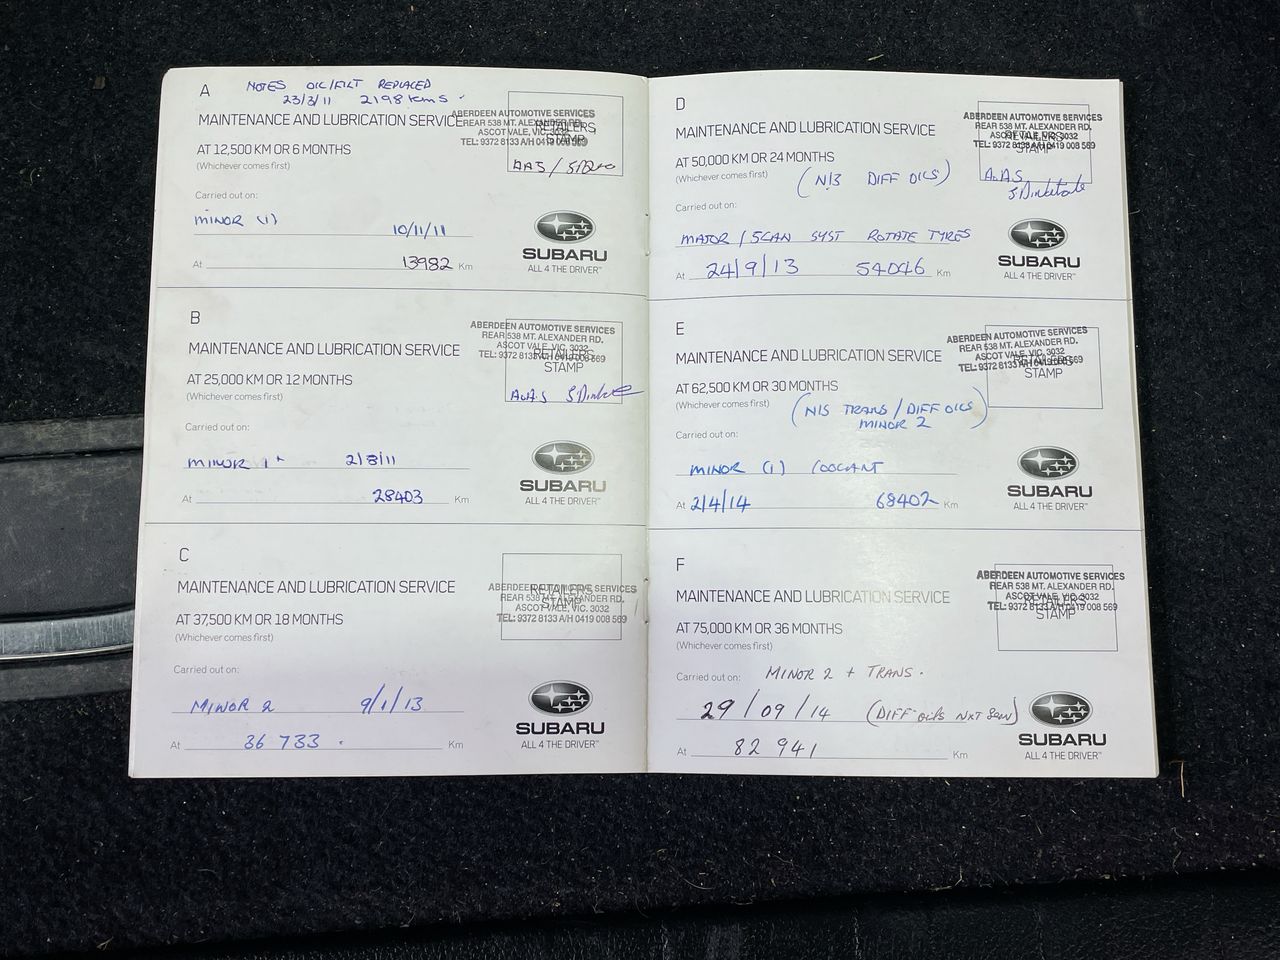 A
NOTES OIL/FILT REPLACED
23/3/11 2198 kms.
MAINTENANCE AND LUBRICATION SERVICE
AT 12,500 KM OR 6 MONTHS
(Whichever comes first)
ABERDEEN AUTOMOTIVE SERVICES
REAR 538 MT. ALEXANDER RD.
ASCOT VALE, VIC, 3032
TEL: 9372 8133 A/H 0419 008 569
RETAILERS
STAMP
AAS /
Carried out on:
MINOR (1) 10/11/11
At 13982 Km
SUBARU
ALL 4 THE DRIVER™
B
MAINTENANCE AND LUBRICATION SERVICE
AT 25,000 KM OR 12 MONTHS
(Whichever comes first)
ABERDEEN AUTOMOTIVE SERVICES
REAR 538 MT. ALEXANDER RD.
ASCOT VALE, VIC, 3032
TEL: 9372 8133 A/H 0419 008 569
RETAILERS
STAMP
A.A.S
Carried out on:
MINOR 1 2/8/11
At 28403 Km
SUBARU
ALL 4 THE DRIVER™
C
MAINTENANCE AND LUBRICATION SERVICE
AT 37,500 KM OR 18 MONTHS
(Whichever comes first)
ABERDEEN AUTOMOTIVE SERVICES
REAR 538 MT. ALEXANDER RD.
ASCOT VALE, VIC. 3032
TEL: 9372 8133 A/H 0419 008 569
RETAILERS
STAMP
Carried out on:
MINOR 2 9/1/13
At 36 733 . Km
SUBARU
ALL 4 THE DRIVER™
D
MAINTENANCE AND LUBRICATION SERVICE
AT 50,000 KM OR 24 MONTHS
(Whichever comes first)
(N/S DIFF OILS)
ABERDEEN AUTOMOTIVE SERVICES
REAR 538 MT. ALEXANDER RD.
ASCOT VALE, VIC, 3032
TEL: 9372 8133 A/H 0419 008 569
RETAILERS
STAMP
A.A.S
Carried out on:
MAJOR / SCAN SYST ROTATE TYRES
At 24/9/13 54046 Km
SUBARU
ALL 4 THE DRIVER™
E
MAINTENANCE AND LUBRICATION SERVICE
AT 62,500 KM OR 30 MONTHS
(Whichever comes first)
(N/S TRANS / DIFF OILS)
MINOR 2
ABERDEEN AUTOMOTIVE SERVICES
REAR 538 MT. ALEXANDER RD.
ASCOT VALE, VIC, 3032
TEL: 9372 8133 A/H 0419 008 569
RETAILERS
STAMP
Carried out on:
MINOR (1) COOLANT
At 2/4/14 68402 Km
SUBARU
ALL 4 THE DRIVER™
F
MAINTENANCE AND LUBRICATION SERVICE
AT 75,000 KM OR 36 MONTHS
(Whichever comes first)
ABERDEEN AUTOMOTIVE SERVICES
REAR 538 MT. ALEXANDER RD.
ASCOT VALE, VIC, 3032
TEL: 9372 8133 A/H 0419 008 569
RETAILERS
STAMP
Carried out on: MINOR 2 + TRANS.
29/09/14 (DIFF OILS NXT SERV)
At 82 941 Km
SUBARU
ALL 4 THE DRIVER™